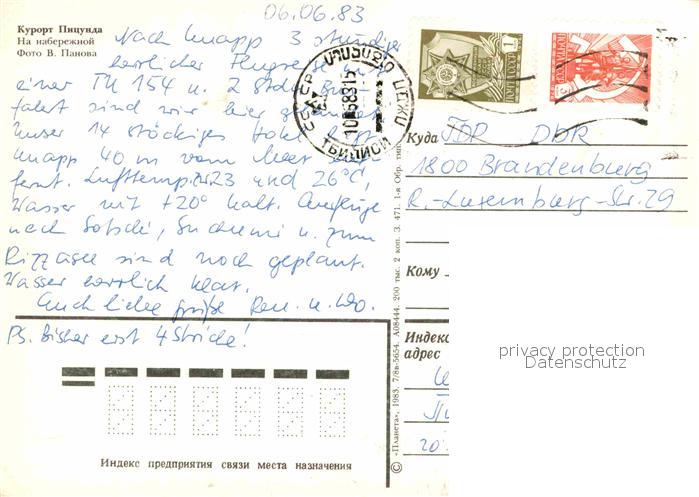 06.06.83
Курорт Пицунда
На набережной
Фото В. Панова
Nach knapp 3 stündiger
herrlicher Flugreise mit
einer TU 154 u. 2 Std.
fahrt sind wir hier
Unser 14 stöckiges Hotel liegt
knapp 40 m vom Meer
fernt. Lufttemp. 23 und 26°C,
Wasser mit +20° kalt. Ausflüge
nach Sotschi, Suchumi u. zum
Rizzasee sind noch geplant.
Wasser herrlich klar.
Euch liebe Grüße Ren. u.
PS. Bisher erst 4 Striche!
СССР
ТБИЛИСИ
1
3
Куда DDR
1800 Brandenburg
R.-Luxemburg-Str. 29
Кому
Индекс
адрес
privacy protection
Datenschutz
Индекс предприятия связи места назначения
© «Планета», 1983. 7/8в-5654. А08444. 200 тыс. 2 коп. З. 471. 1-я Обр. тип.